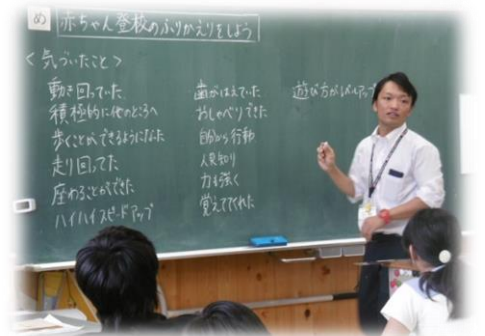 め 赤ちゃん登校のふりかえりをしよう
<気づいたこと>
動き回っていた
積極的に他のところへ
歩くことができるようになった
走り回ってた
座わることができた
ハイハイスピードアップ
歯がはえていた
おしゃべりできた
自分から行動
人見知り
力も強く
覚えててくれた
遊び方がレベルアップ